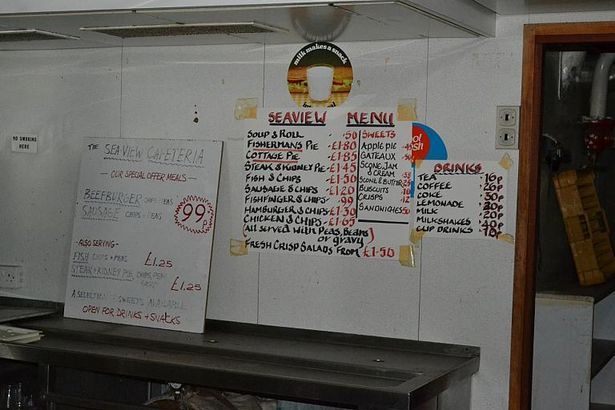 milk makes a snack
NO SMOKING HERE
THE SEAVIEW CAFETERIA
OUR SPECIAL OFFER MEALS -
BEEFBURGER CHIPS PEAS
SAUSAGE CHIPS PEAS
99p
ALSO SERVING -
FISH CHIPS + PEAS £1.25
STEAK + KIDNEY PIE CHIPS PEAS
£1.25
A SELECTION SWEETS AVAILABLE
OPEN FOR DRINKS + SNACKS
SEAVIEW MENU
SOUP & ROLL .50
FISHERMANS PIE £1.80
COTTAGE PIE £1.85
STEAK & KIDNEY PIE £1.45
FISH & CHIPS £1.50
SAUSAGE & CHIPS £1.20
FISHFINGER & CHIPS .99
HAMBURGER & CHIPS £1.30
CHICKEN & CHIPS £1.65
all SERVED WITH PEAS, BEANS
or gravy
FRESH CRISP SALADS FROM £1.50
SWEETS
Apple pie
GATEAUX
SCONE, JAM
& CREAM
SCONE & BUTTER
BUSCUITS
CRISPS
SANDWICHES
DRINKS
TEA 16p
COFFEE
COKE
LEMONADE
MILK 20p
MILKSHAKES
CUP DRINKS